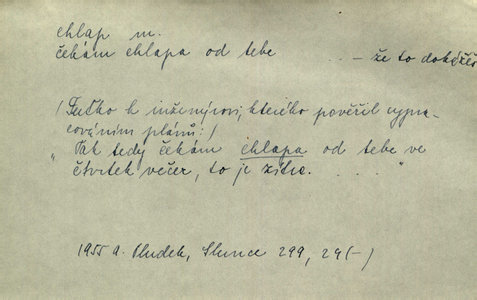 chlap m.
čekám chlapa od tebe ... — že to dokážeš
/Tuťko k inženýrovi, kterého pověřil vypra-
cováním plánů:/
"Tak tedy čekám chlapa od tebe ve
čtvrtek večer, to je zítra. . . . . "
1955 A. Hudek, Slunce 299, 29(-)